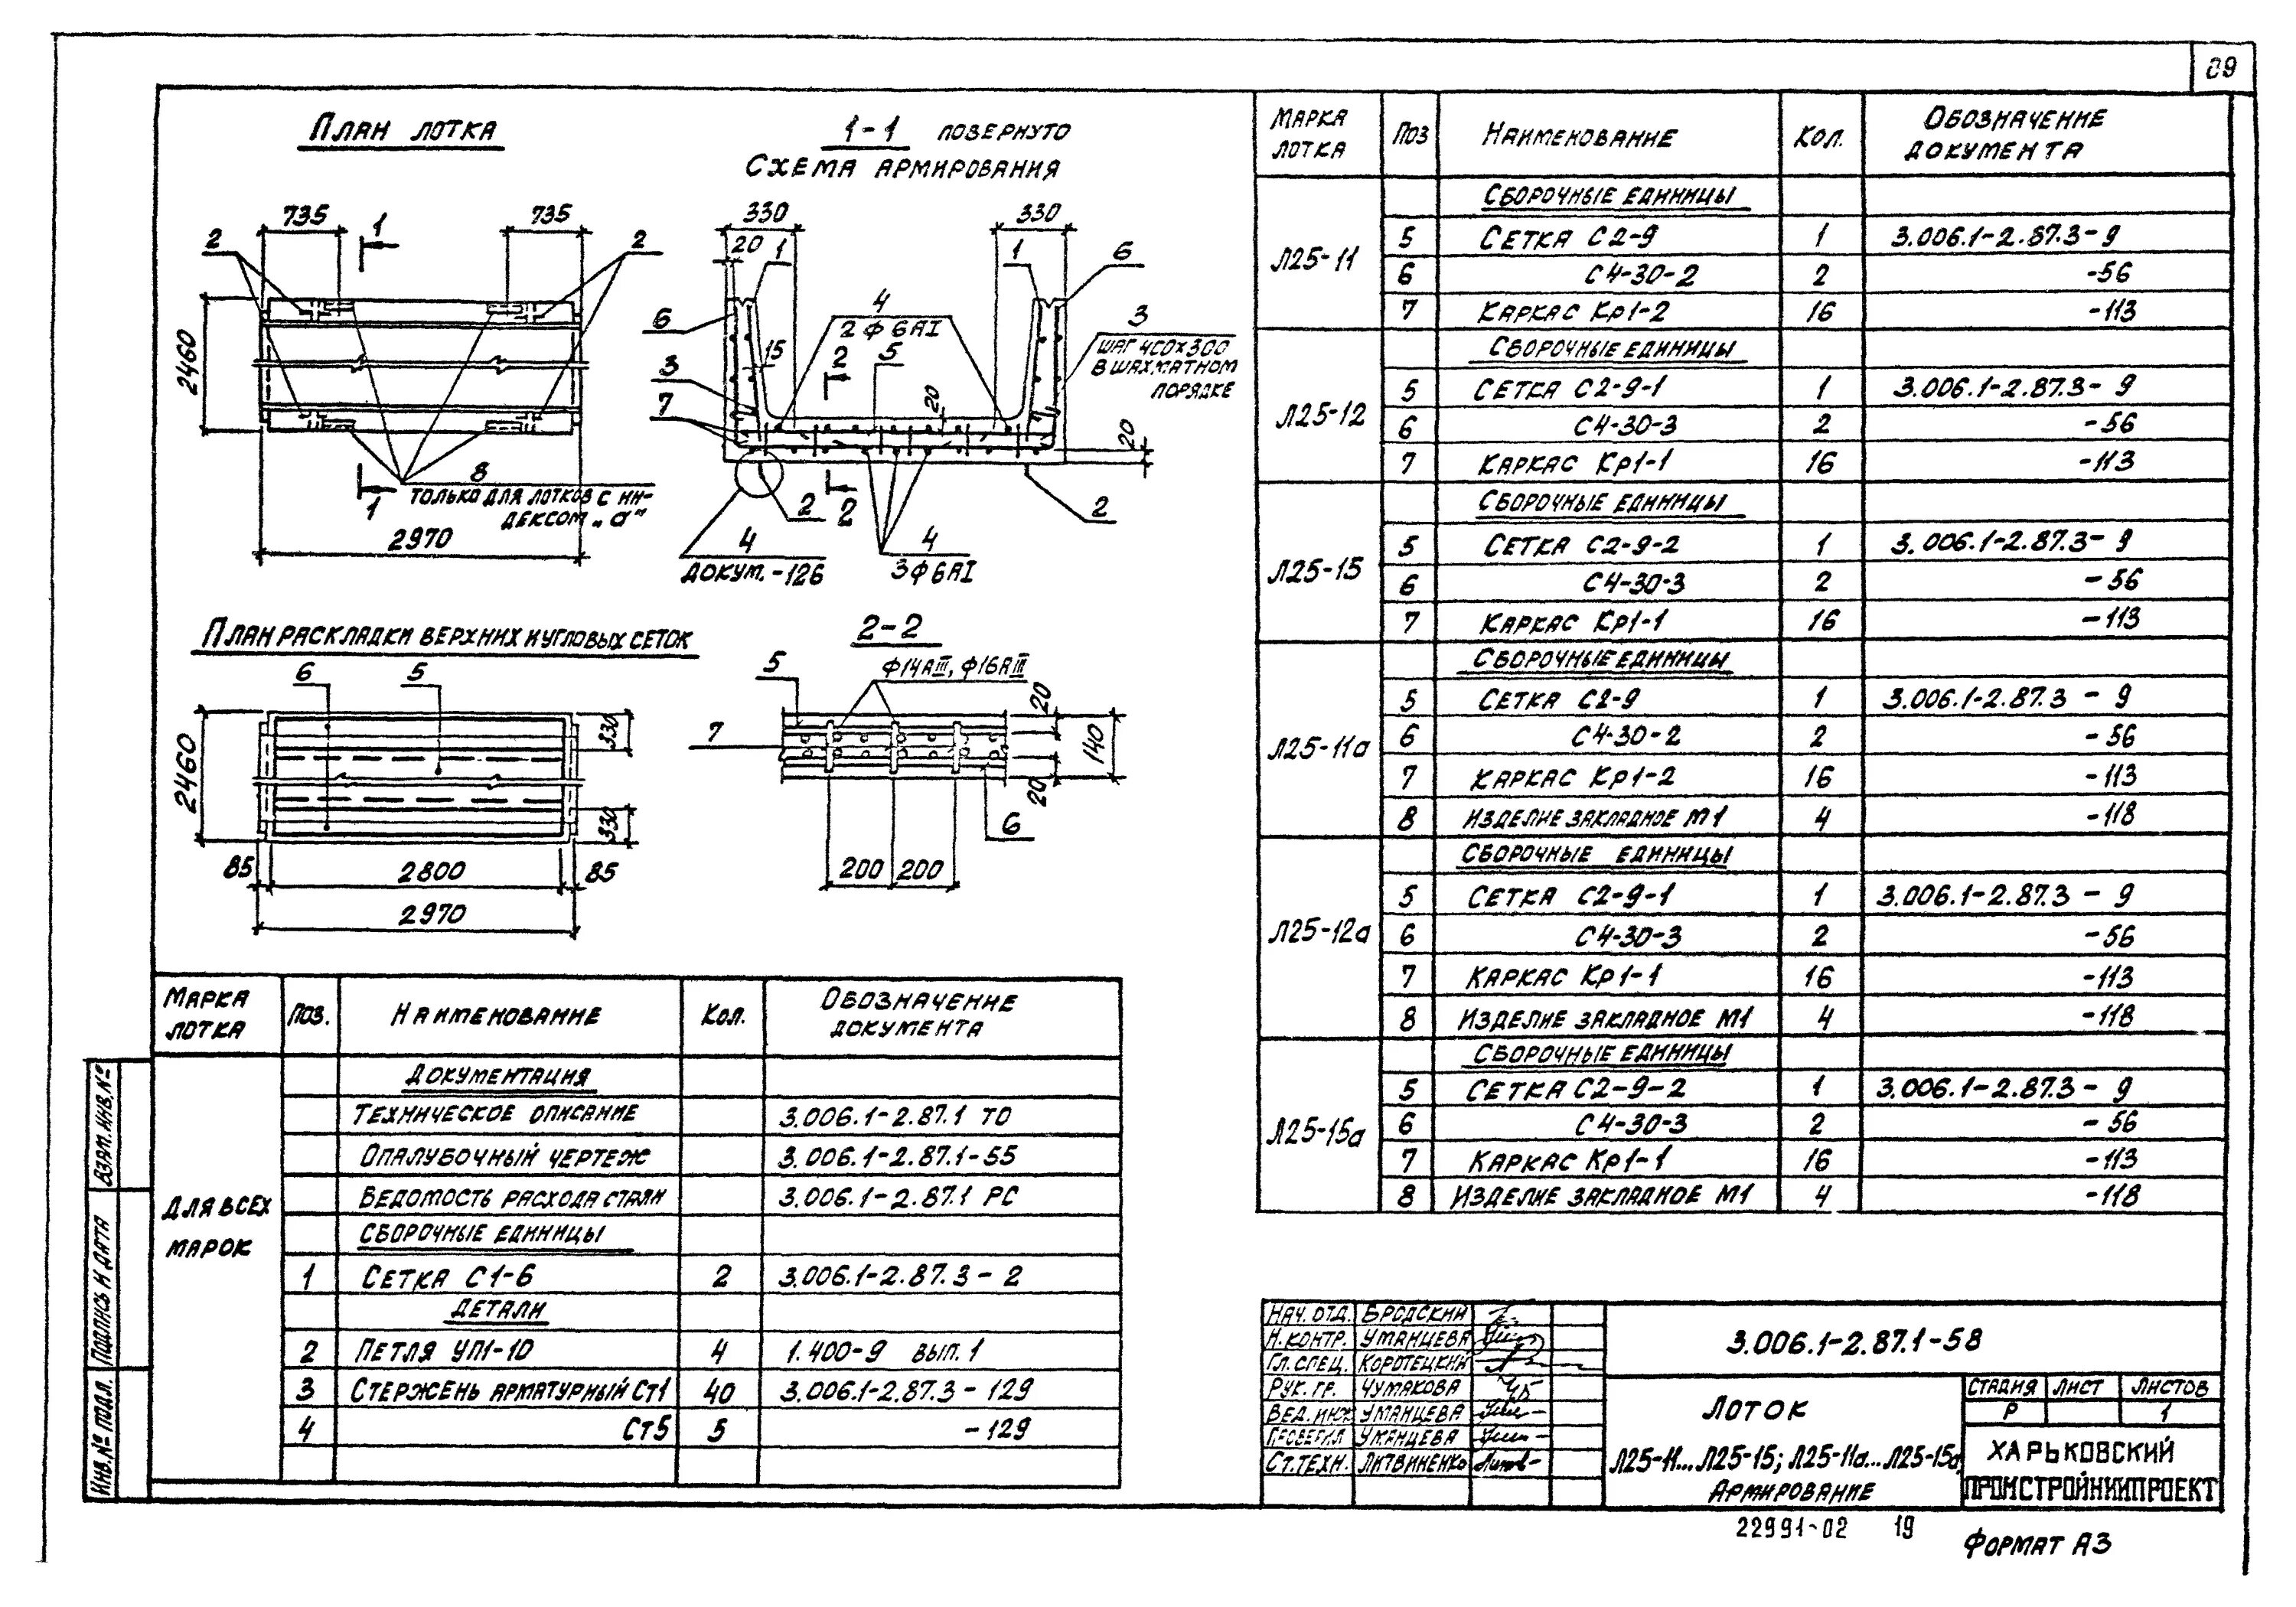 89
План лотка
735
735
1
2
2
2460
8
только для лотков с ин-
дексом „а“
1
2970
1-1 повернуто
Схема армирования
330
330
20
1
1
6
4
2ф6АI
6
3
шаг 400х300
в шахматном
порядке
15
2
5
3
7
20
20
2
2
2
4
докум. -126
4
3ф6АI
План раскладки верхних и угловых сеток
6
5
330
2460
330
85
2800
85
2970
2-2
5
ф14АIII, ф16АIII
20
7
140
20
6
200
200
Марка лотка Поз. Наименование Кол. Обозначение документа
Для всех марок
Документация
Техническое описание 3.006.1-2.87.1 ТО
Опалубочный чертеж 3.006.1-2.87.1-55
Ведомость расхода стали 3.006.1-2.87.1 РС
Сборочные единицы
1 Сетка С1-6 2 3.006.1-2.87.3-2
Детали
2 Петля УП1-10 4 1.400-9 вып.1
3 Стержень арматурный Ст1 40 3.006.1-2.87.3-129
4 Ст5 5 -129
Марка лотка Поз Наименование Кол. Обозначение документа
Л25-11
Сборочные единицы
5 Сетка С2-9 1 3.006.1-2.87.3-9
6 С4-30-2 2 -56
7 Каркас Кр1-2 16 -113
Л25-12
Сборочные единицы
5 Сетка С2-9-1 1 3.006.1-2.87.3-9
6 С4-30-3 2 -56
7 Каркас Кр1-1 16 -113
Л25-15
Сборочные единицы
5 Сетка С2-9-2 1 3.006.1-2.87.3-9
6 С4-30-3 2 -56
7 Каркас Кр1-1 16 -113
Л25-11а
Сборочные единицы
5 Сетка С2-9 1 3.006.1-2.87.3-9
6 С4-30-2 2 -56
7 Каркас Кр1-2 16 -113
8 Изделие закладное М1 4 -118
Л25-12а
Сборочные единицы
5 Сетка С2-9-1 1 3.006.1-2.87.3-9
6 С4-30-3 2 -56
7 Каркас Кр1-1 16 -113
8 Изделие закладное М1 4 -118
Л25-15а
Сборочные единицы
5 Сетка С2-9-2 1 3.006.1-2.87.3-9
6 С4-30-3 2 -56
7 Каркас Кр1-1 16 -113
8 Изделие закладное М1 4 -118
Нач. отд. Бродский
Н. контр. Уманцева
Гл. спец. Коротецкий
Рук. гр. Чумакова
Вед. инж Уманцева
Проверил Уманцева
Ст. техн. Литвиненко
3.006.1-2.87.1-58
Лоток
Л25-11...Л25-15; Л25-11а...Л25-15а
Армирование
Стадия Лист Листов
Р 1
Харьковский
Промстройниипроект
22991-02 19
Формат А3
Взам. инв. №
Подпись и дата
Инв. № подл.